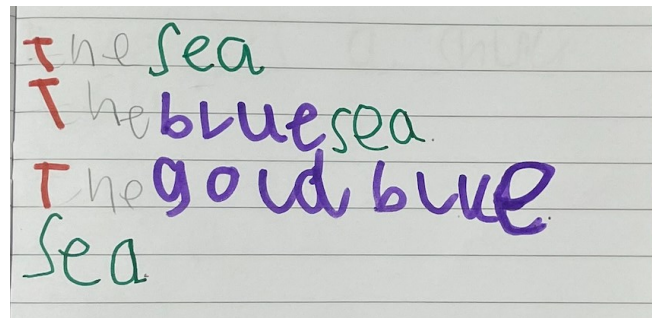 The sea
The blue sea.
The gold blue.
sea.